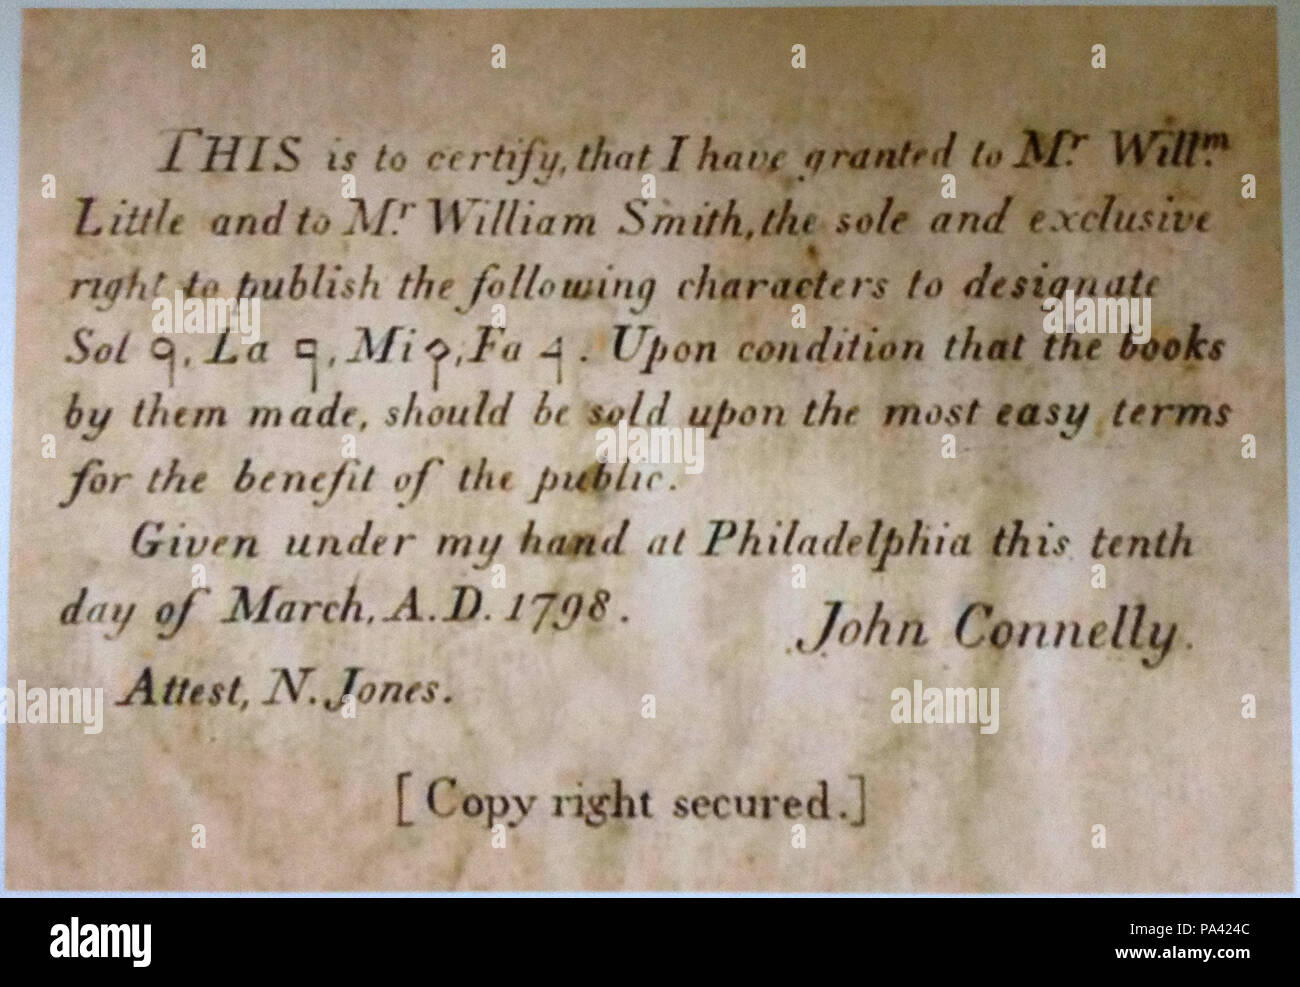 THIS is to certify, that I have granted to Mr. Willm.
Little and to Mr. William Smith, the sole and exclusive
right to publish the following characters to designate
Sol , La , Mi , Fa . Upon condition that the books
by them made, should be sold upon the most easy terms
for the benefit of the public.
Given under my hand at Philadelphia this tenth
day of March, A.D. 1798.
John Connelly.
Attest, N. Jones.
[Copy right secured.]
a alamy
alamy
Image ID: PA424C
www.alamy.com